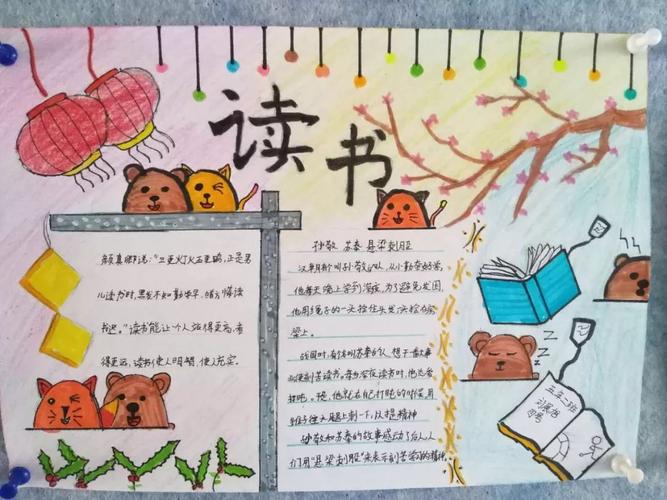 读书
颜真卿说:"三更灯火五更鸡,正是男
儿读书时,黑发不知勤学早,白首悔读
书迟。"读书能让个人站得更高,看
得更远,读书使人明智,使人充实。
孙敬 苏秦 悬梁刺股
汉朝有个叫孙敬的人,从小勤奋好学,
他每天晚上学到深夜,为了避免发困,
他用绳子的一头拴住头发一头拴在房
梁上。
战国时,有个叫苏秦的人,想干一番大事
刻苦读书。每当深夜读书时,他总爱
打盹。他就在自己打盹的时候,用
锥子往大腿上刺一下,以提精神
孙敬和苏秦的故事感动了后人,人
们用"悬梁刺股"来表示刻苦学习的精神
五年二班